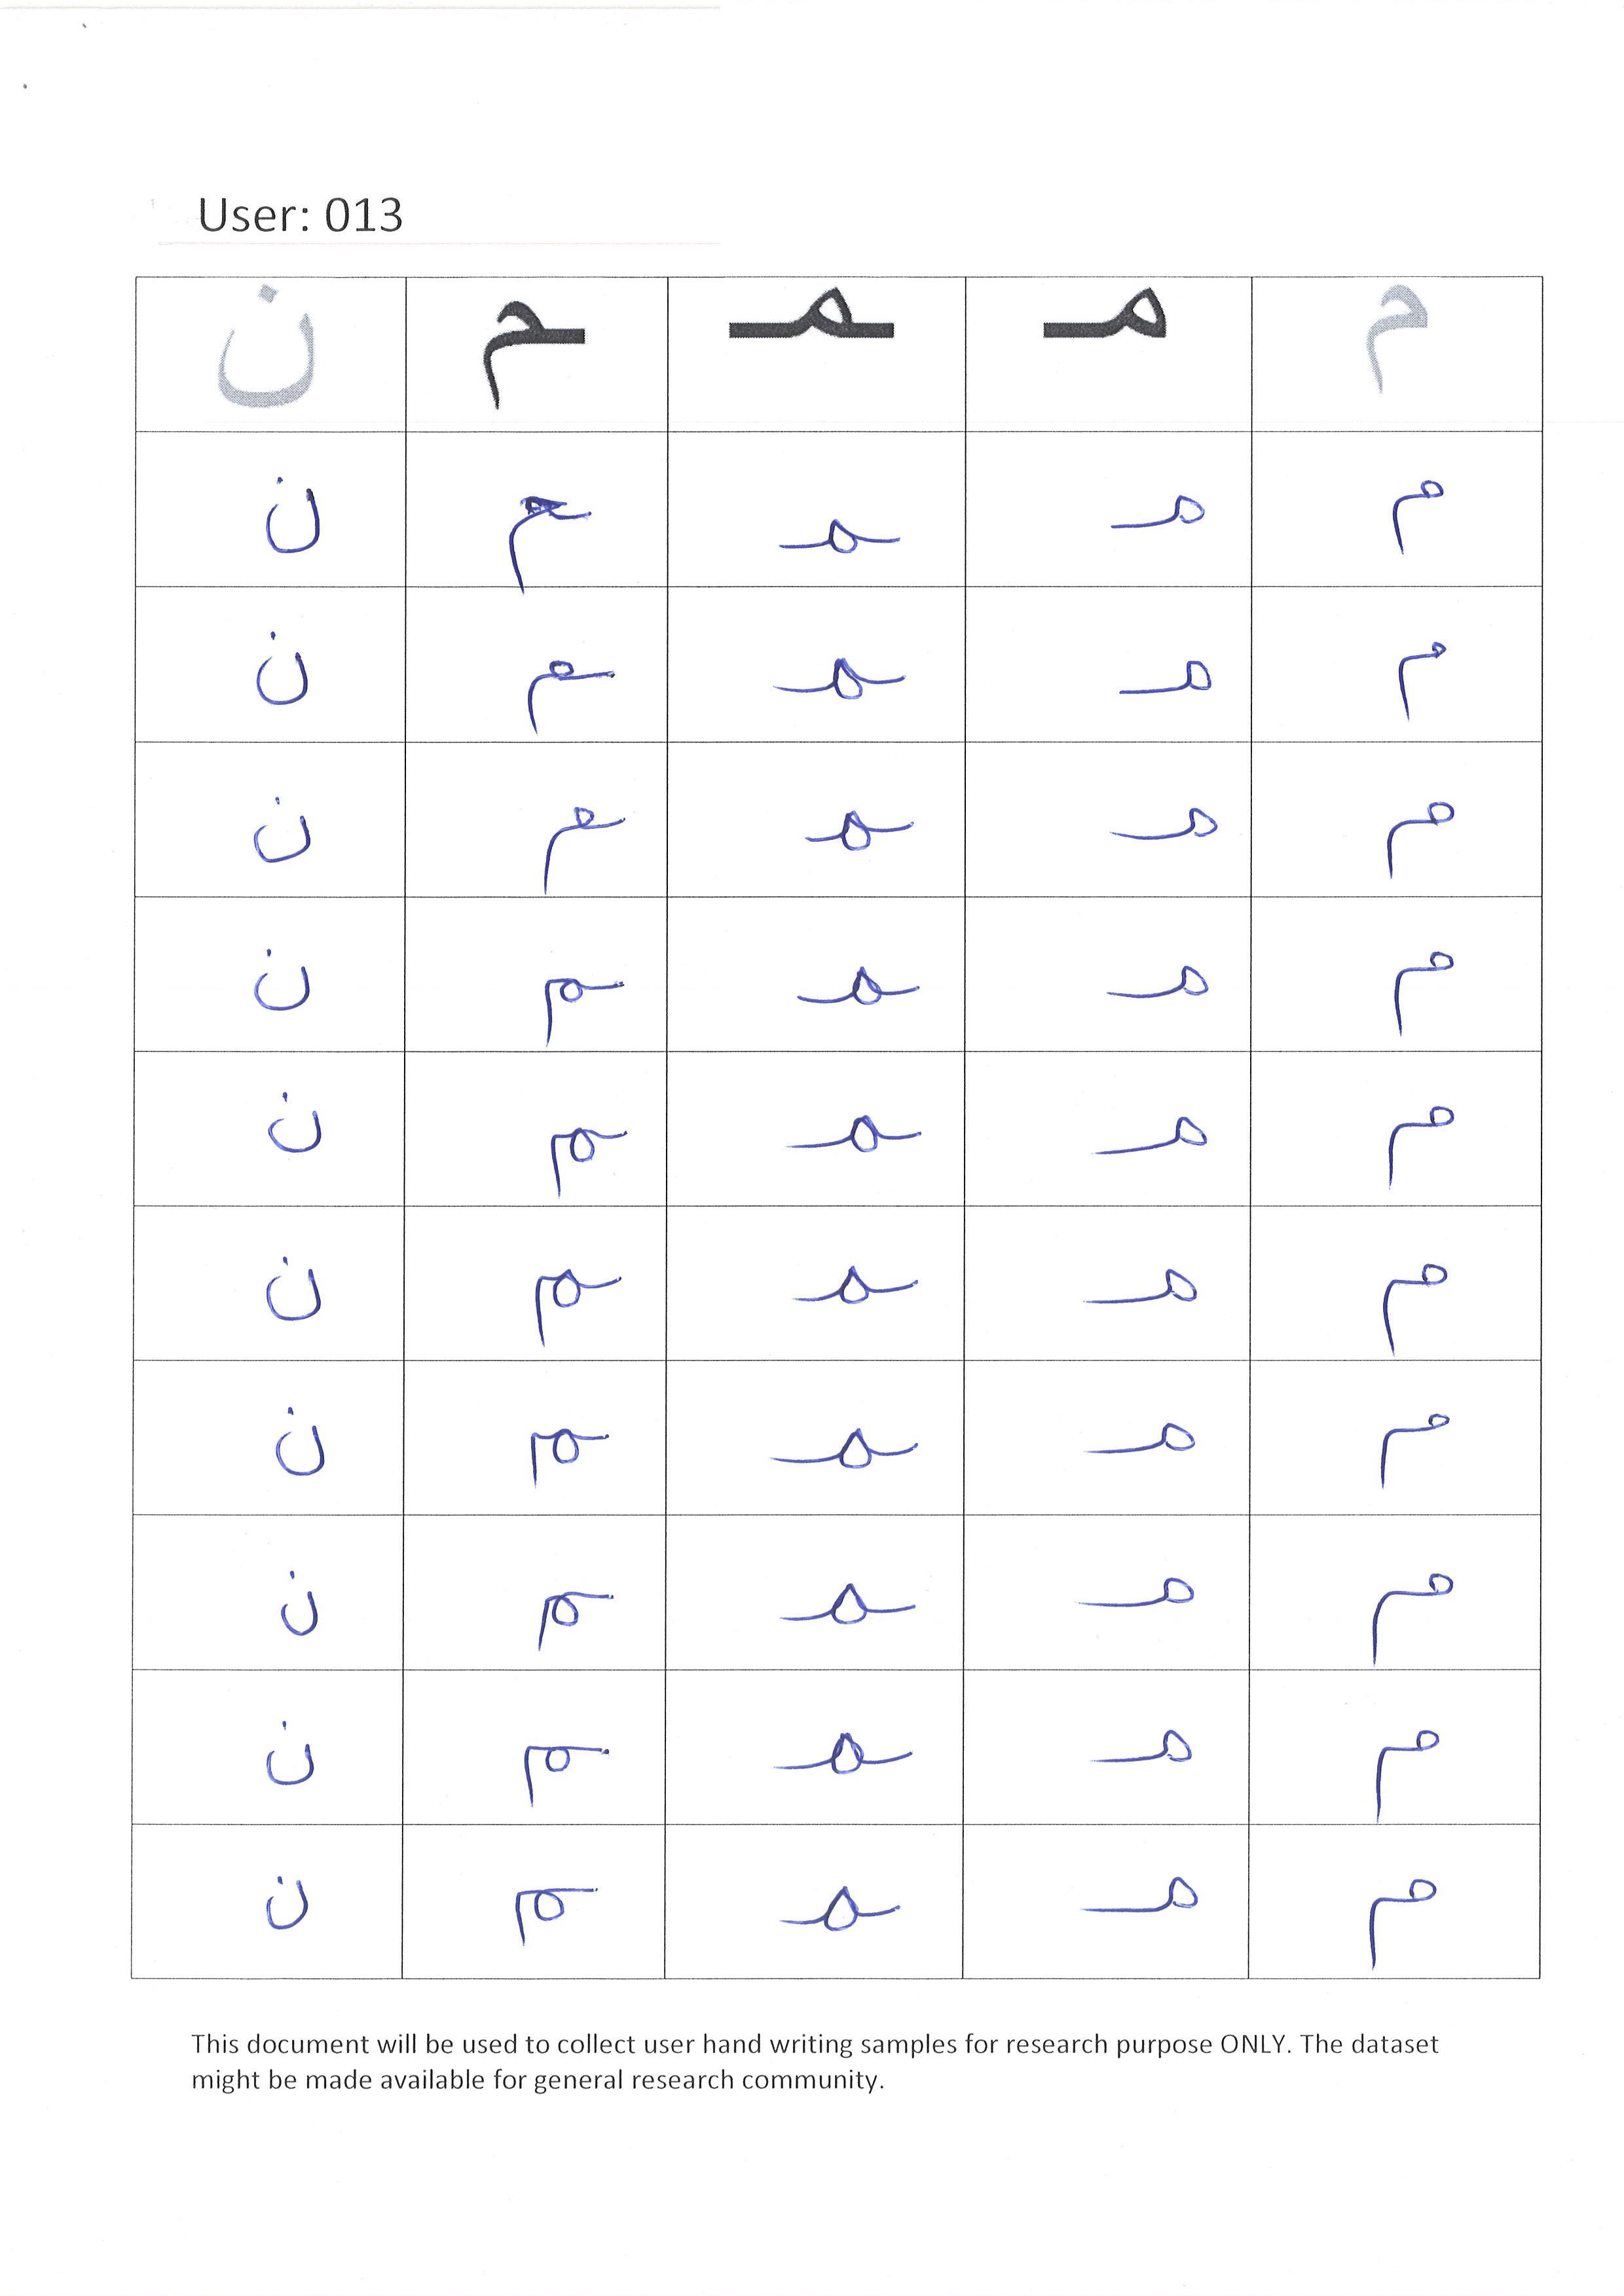 User: 013
م مـ ـمـ ـم ن
م مـ ـمـ ـم ن
م مـ ـمـ ـم ن
م مـ ـمـ ـم ن
م مـ ـمـ ـم ن
م مـ ـمـ ـم ن
م مـ ـمـ ـم ن
م مـ ـمـ ـم ن
م مـ ـمـ ـم ن
م مـ ـمـ ـم ن
م مـ ـمـ ـم ن
This document will be used to collect user hand writing samples for research purpose ONLY. The dataset
might be made available for general research community.